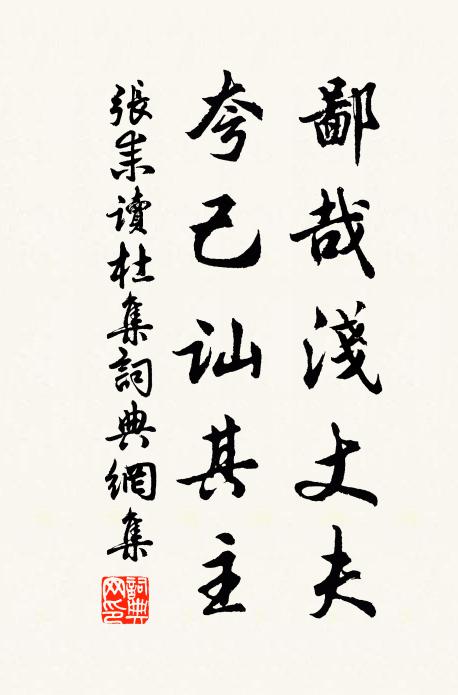 鄙哉淺丈夫
夸己訕其主
張耒讀杜集詞典網集
詞典网印